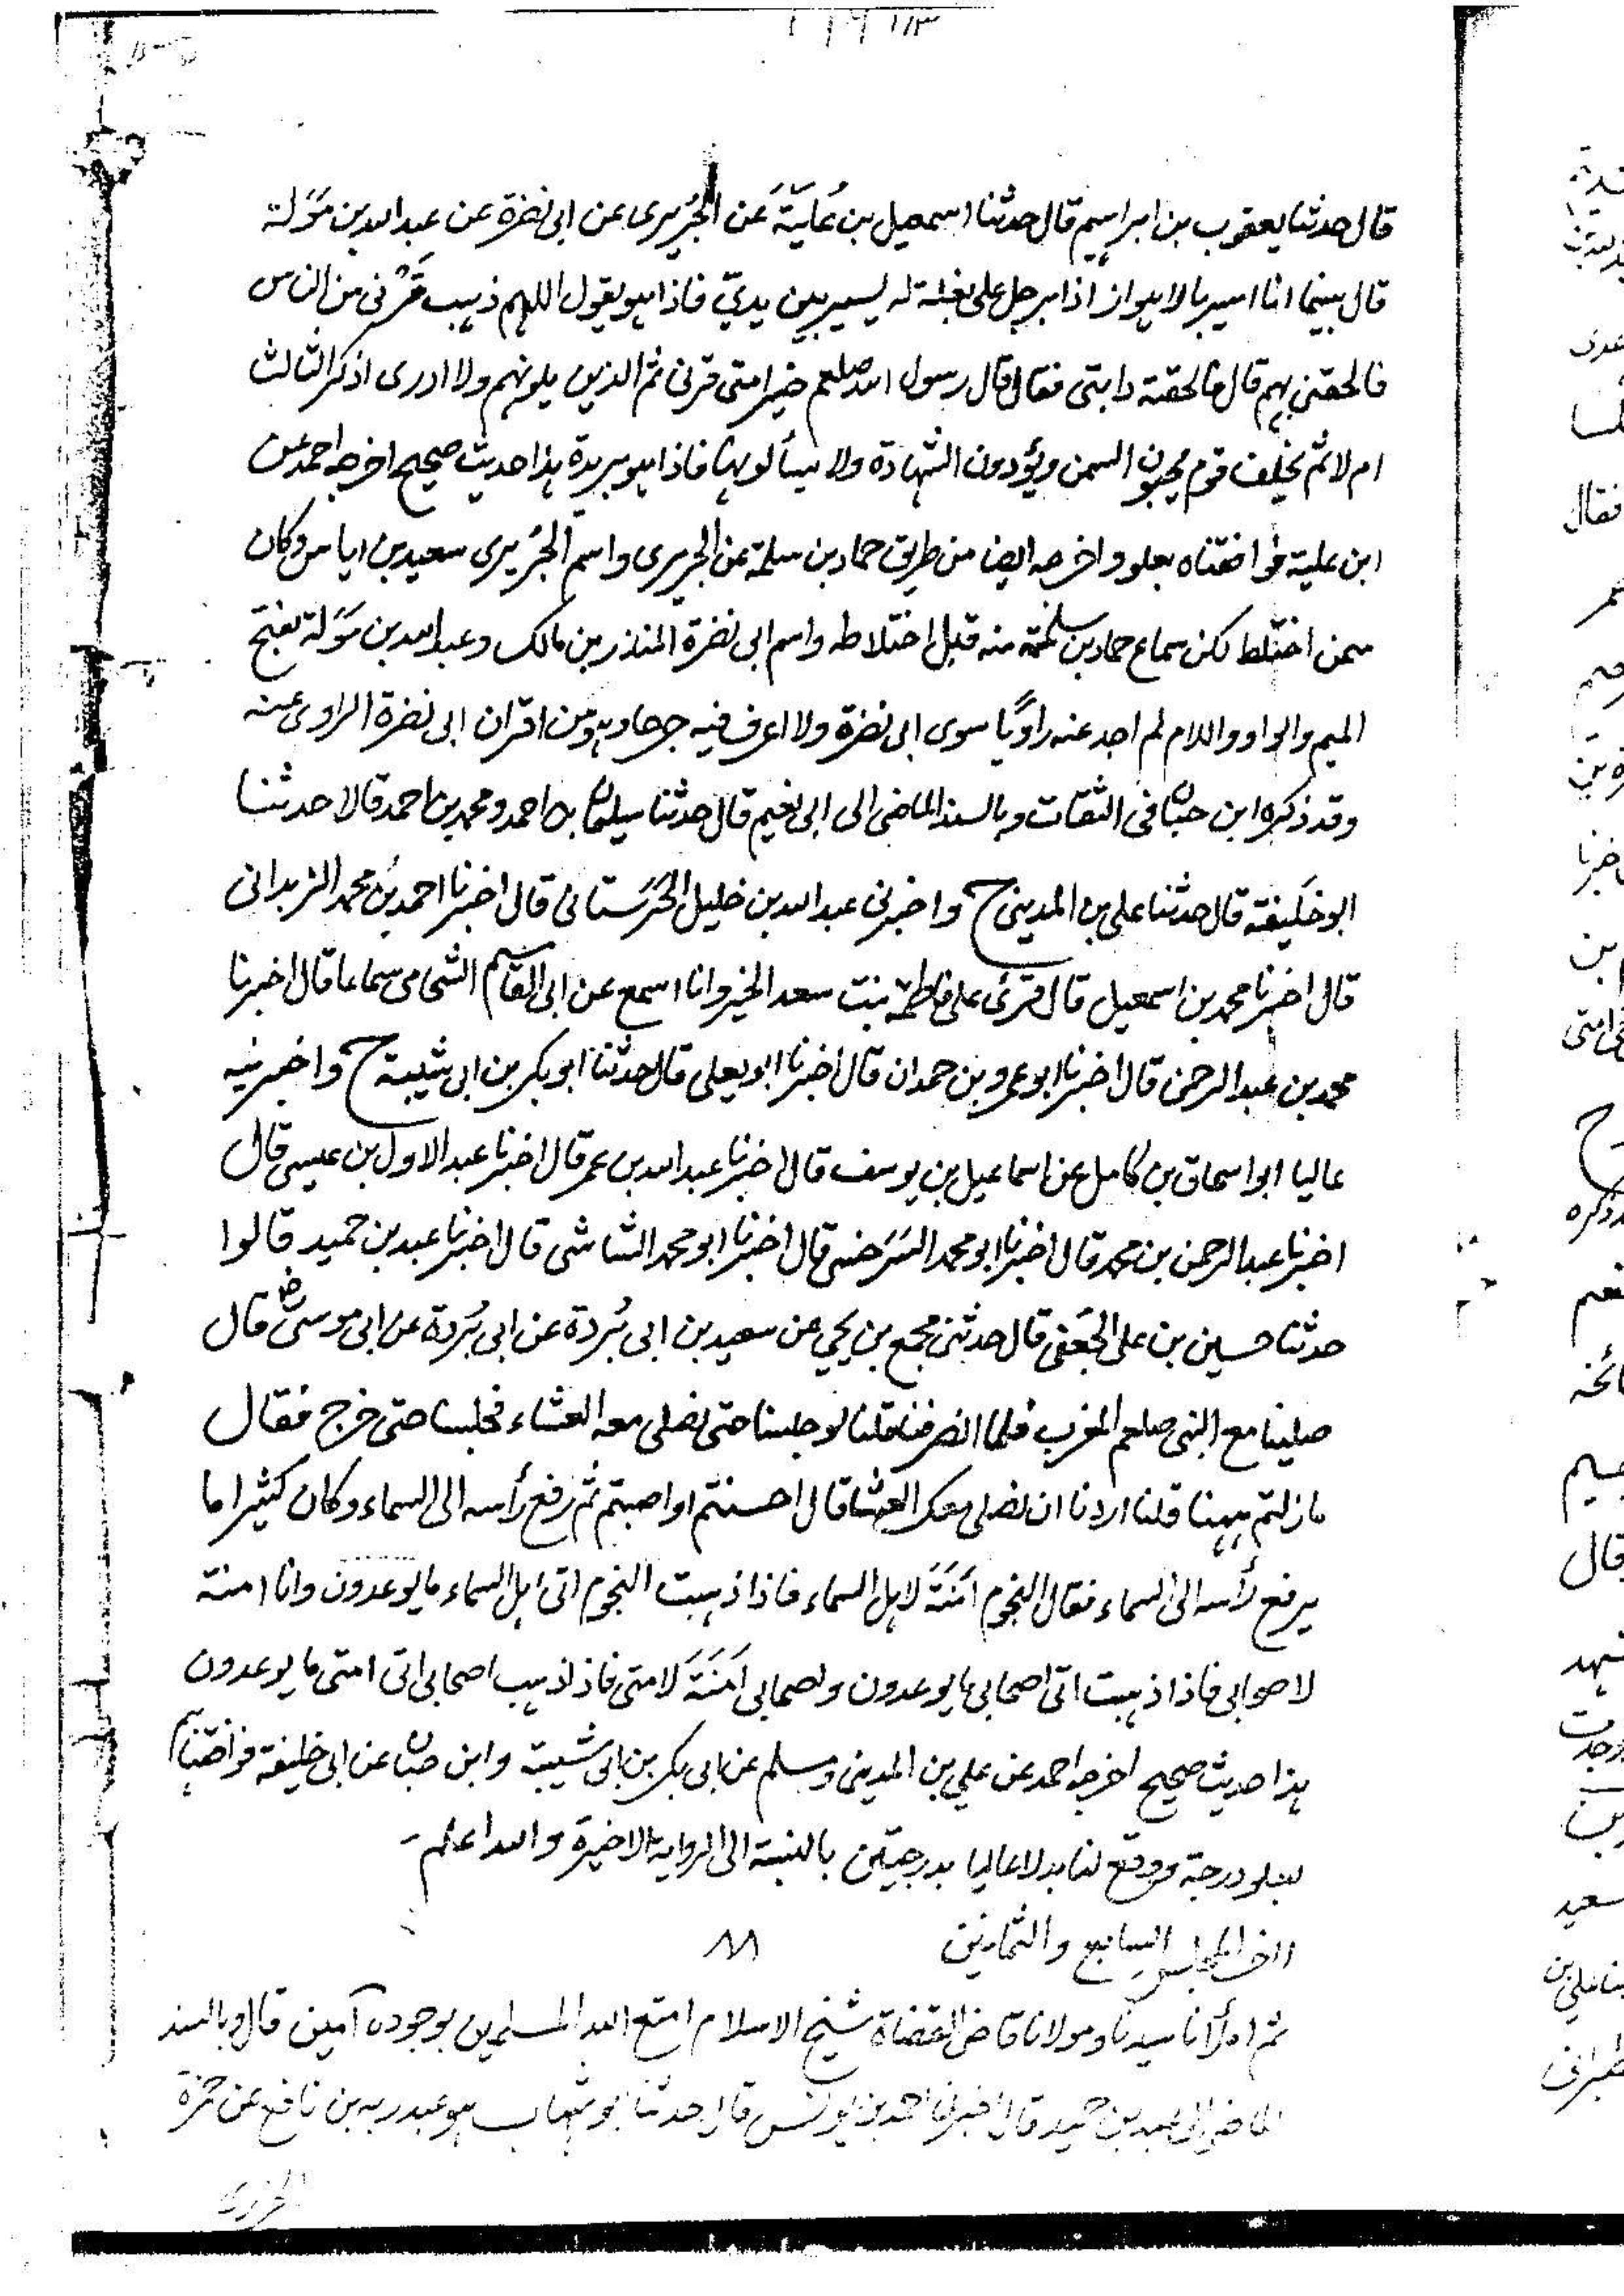 قال حدثنا يعقوب بن ابراهيم قال حدثنا اسمعيل بن عُلَيّةَ عَن الجُرَيرى عن ابى نضرة عن عبد الله بن مَوَلة
قال بينما انا اسير بالاهواز اذا برجل على بغلة له يسير بين يديّ فاذا هو يقول اللهم ذهب قَرْنى من الناس
فالحقنى بهم قال فالحقته دابتى فقال قال رسول الله صلعم خير امتى قرنى ثم الذين يلونهم ولا ادرى اذكر الثالث
ام لا ثم يخلف قوم يحبون السمن ويؤدون الشهادة ولا يسألونها فاذا هو بريدة هذا حديث صحيح اخرجه احمد عن
ابن علية فوافقناه بعلو واخرجه ايضا من طريق حماد بن سلمة عن الجريرى واسم الجُرَيرى سعيد بن اياس وكان
ممن اختلط لكن سماع حماد بن سلمة منه قبل اختلاطه واسم ابى نضرة المنذر بن مالك وعبد الله بن مَوَلة بفتح
الميم والواو واللام لم اجد عنه راويًا سوى ابى نضرة ولا اعرف فيه جرحا وهو من اقران ابى نضرة الراوى عنه
وقد ذكره ابن حبان فى الثقات وبالسند الماضى الى ابى نعيم قال حدثنا سليمان بن احمد ومحمد بن احمد قالا حدثنا
ابو خليفة قال حدثنا على بن المدينى ح واخبرنى عبد الله بن خليل الحَرَستانى قال اخبرنا احمد بن محمد الزبدانى
قال اخبرنا محمد بن اسمعيل قال قرئ على فاطمة بنت سعد الخير وانا اسمع عن ابى القاسم الشحامى سماعا قال اخبرنا
محمد بن عبد الرحمن قال اخبرنا ابو عمرو بن حمدان قال اخبرنا ابو يعلى قال حدثنا ابو بكر بن ابى شيبة ح واخبرنيه
عاليا ابو اسحاق بن كامل عن اسماعيل بن يوسف قال اخبرنا عبد الله بن عمر قال اخبرنا عبد الاول بن عيسى قال
اخبرنا عبد الرحمن بن محمد قال اخبرنا ابو محمد السَرَخسى قال اخبرنا ابو محمد الشاشى قال اخبرنا عبد بن حميد قالوا
حدثنا حسين بن على الجعفى قال حدثنى مجمع بن يحيى عن سعيد بن ابى بُردة عن ابى بُردة عن ابى موسىٰ رض قال
صلينا مع النبى صلعم المغرب فلما انصرفنا قلنا لو جلسنا حتى نصلى معه العشاء فجلسنا حتى خرج فقال
ما زلتم ههنا قلنا اردنا ان نصلى معك العشا قال احسنتم او اصبتم ثم رفع رأسه الى السماء وكان كثيرا ما
يرفع رأسه الى السماء فقال النجوم اَمَنَةَ لاهل السماء فاذا ذهبت النجوم اتى اهل السماء ما يوعدون وانا امنة
لاصحابى فاذا ذهبت اتى اصحابى ما يوعدون واصحابى اَمَنَةَ لامتى فاذا ذهب اصحابى اتى امتى ما يوعدون
هذا حديث صحيح اخرجه احمد عن على بن المدينى ومسلم عن ابى بكر بن ابى شيبة وابن حبان عن ابى خليفة فوافقناهم
بعلو درجة ووقع لنا بدلا عاليا بدرجتين بالنسبة الى الرواية الاخيرة والله اعلم -
اخر المجلس السابع والثمانين ٨٨
ثم املأنا سيدنا ومولانا قاضى القضاة شيخ الاسلام امتع الله المسلمين بوجوده آمين قال وبالسند
الماضى الى عبد بن حميد قال اخبرنا احمد بن يونس قال حدثنا ابو شهاب هو عبد ربه بن نافع عن حمزة
الجزرى